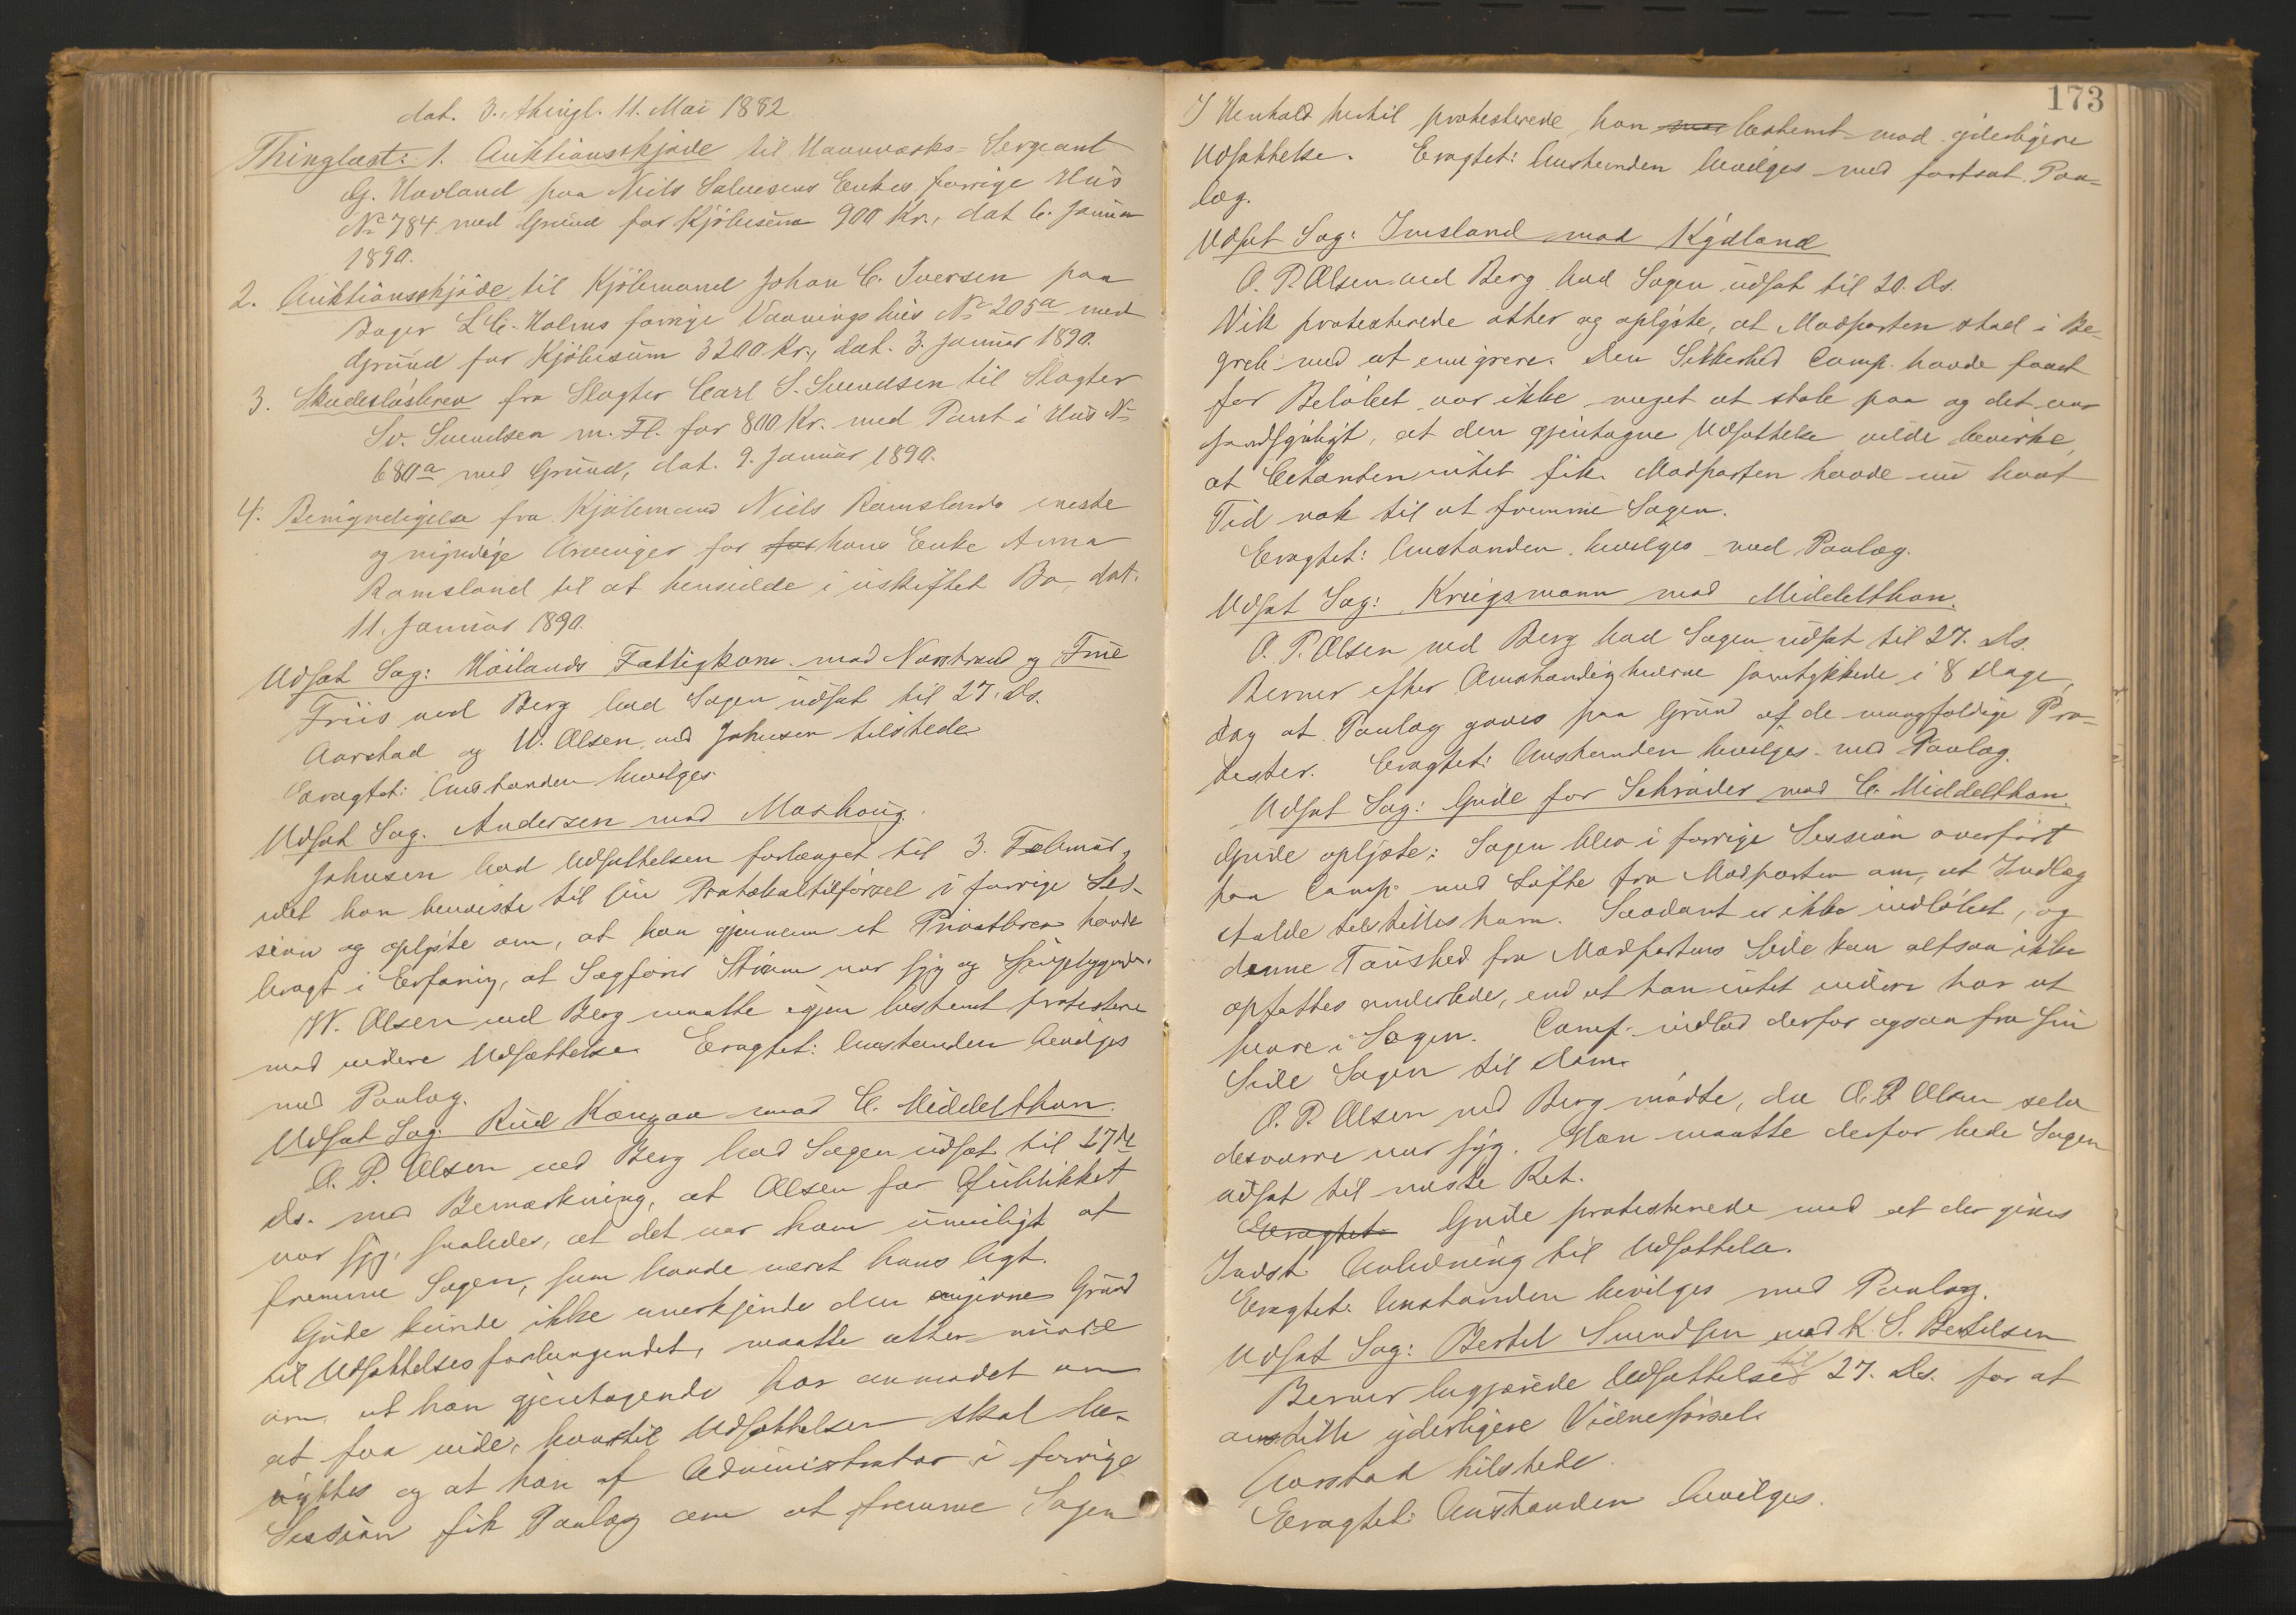 dat. 3., thingl. 11. Mai 1882
Thinglæst: 1. Auktionsskjøde til Havnvæsens-Sergeant
G. Havland paa Niels Salvesens Enkes forrige Hus
No 784 med Grund for Kjøbesum 900 Kr., dat 6. Januar
1890.
2. Auktionsskjøde til Kjøbmand Johan C. Iversen paa
Bager L. C. Holms forrige Vaaningshus No 205a med
Grund for Kjøbesum 3200 Kr., dat. 3. Januar 1890.
3. Skadesløsbrev fra Slagter Carl S. Svendsen til Slagter
Sv. Svendsen m. Fl. for 800 Kr. med Pant i Hus No
680a med Grund, dat. 9. Januar 1890.
4. Bemyndigelse fra Kjøbmand Niels Ramslands eneste
og myndige Arvinger for for hans Enke Anna
Ramsland til at hensidde i uskiftet Bo, dat.
11. Januar 1890.
Udsat Sag: Höilands Fattigkom. mod Norstrand og Frue
Friis ved Berg bad Sagen udsat til 27. ds.
Aarstad og W. Olsen ved Johnsen tilstede
Eragtet: Anstanden bevilges.
Udsat Sag. Andersen mod Moshoug.
Johnsen bad Udsættelsen forlænget til 3. Februar,
idet han henviste til sin Protokoltilførsel i forrige Ses-
sion og oplyste om, at han gjennem et Privatbrev havde
bragt i Erfaring, at Sagfører Strøm var syg og sengeliggende.
W. Olsen ved Berg maatte igjen bestemt protestere
mod videre Udsættelse. Eragtet: Anstanden bevilges
med Paalæg.
Udsat Sag: Rud Kongaa mod C. Middelthon.
O. P. Olsen ved Berg bad Sagen udsat til 27de
ds. med Bemærkning, at Olsen for Øieblikket
var syg, saaledes, at det var ham umuligt at
fremme Sagen, som havde været hans Agt.
Gude kunde ikke anerkjende den angivne Grund
til Udsættelsesforlangendet, maatte atter minde
om, at han gjentagende har anmodet om
at faa vide, hvortil Udsættelsen skal be-
nyttes og at han af Administrator i forrige
Session fik Paalæg om at fremme Sagen
173
I Henhold hertil protesterede han mod bestemt mod yderligere
Udsættelse. Eragtet: Anstanden bevilges med fortsat Paa-
læg.
Udsat Sag: Imsland mod Kydland
O. P. Olsen ved Berg bad Sagen udsat til 20. ds.
Vik protesterede atter og oplyste, at Modparten stod i Be-
greb med at emigrere. Den Sikkerhed Comp. havde faaet
for Beløbet var ikke noget at stole paa og det var
sandsynligt, at den gjentagne Udsættelse vilde bevirke,
at Citanten intet fik. Modparten havde nu havt
Tid nok til at fremme Sagen.
Eragtet: Anstanden bevilges med Paalæg.
Udsat Sag: Kriegsmann mod Middelthon.
O. P. Olsen ved Berg bad Sagen udsat til 27. ds.
Berner efter Omstændighederne samtykkede i 8 Dage,
dog at Paalæg gaves paa Grund af de mangfoldige Pro-
tester. Eragtet: Anstanden bevilges med Paalæg.
Udsat Sag: Gude for Schrøder mod C. Middelthon.
Gude oplyste: Sagen blev i forrige Session overført
paa Comp. med Løfte fra Modparten om, at Indlæg
skulde tilstilles ham. Saadant er ikke indløbet, og
denne Taushed fra Modpartens Side kan altsaa ikke
opfattes anderledes, end at han intet videre har at
svare i Sagen. Comp. indlod derfor ogsaa fra sin
Side Sagen til Dom.
O. P. Olsen ved Berg mødte, da O. P. Olsen selv
desværre var syg. Han maatte derfor bede Sagen
udsat til næste Ret.
Eragtet Gude protesterede mod at der gives
Indst. Anledning til Udsættelse.
Eragtet: Anstanden bevilges med Paalæg.
Udsat Sag: Bertel Svendsen mod K. S. Bertelsen
Berner begjærede Udsættelse til 27. ds. for at
anstille yderligere Vidneførsel.
Aarstad tilstede.
Eragtet: Anstanden bevilges.